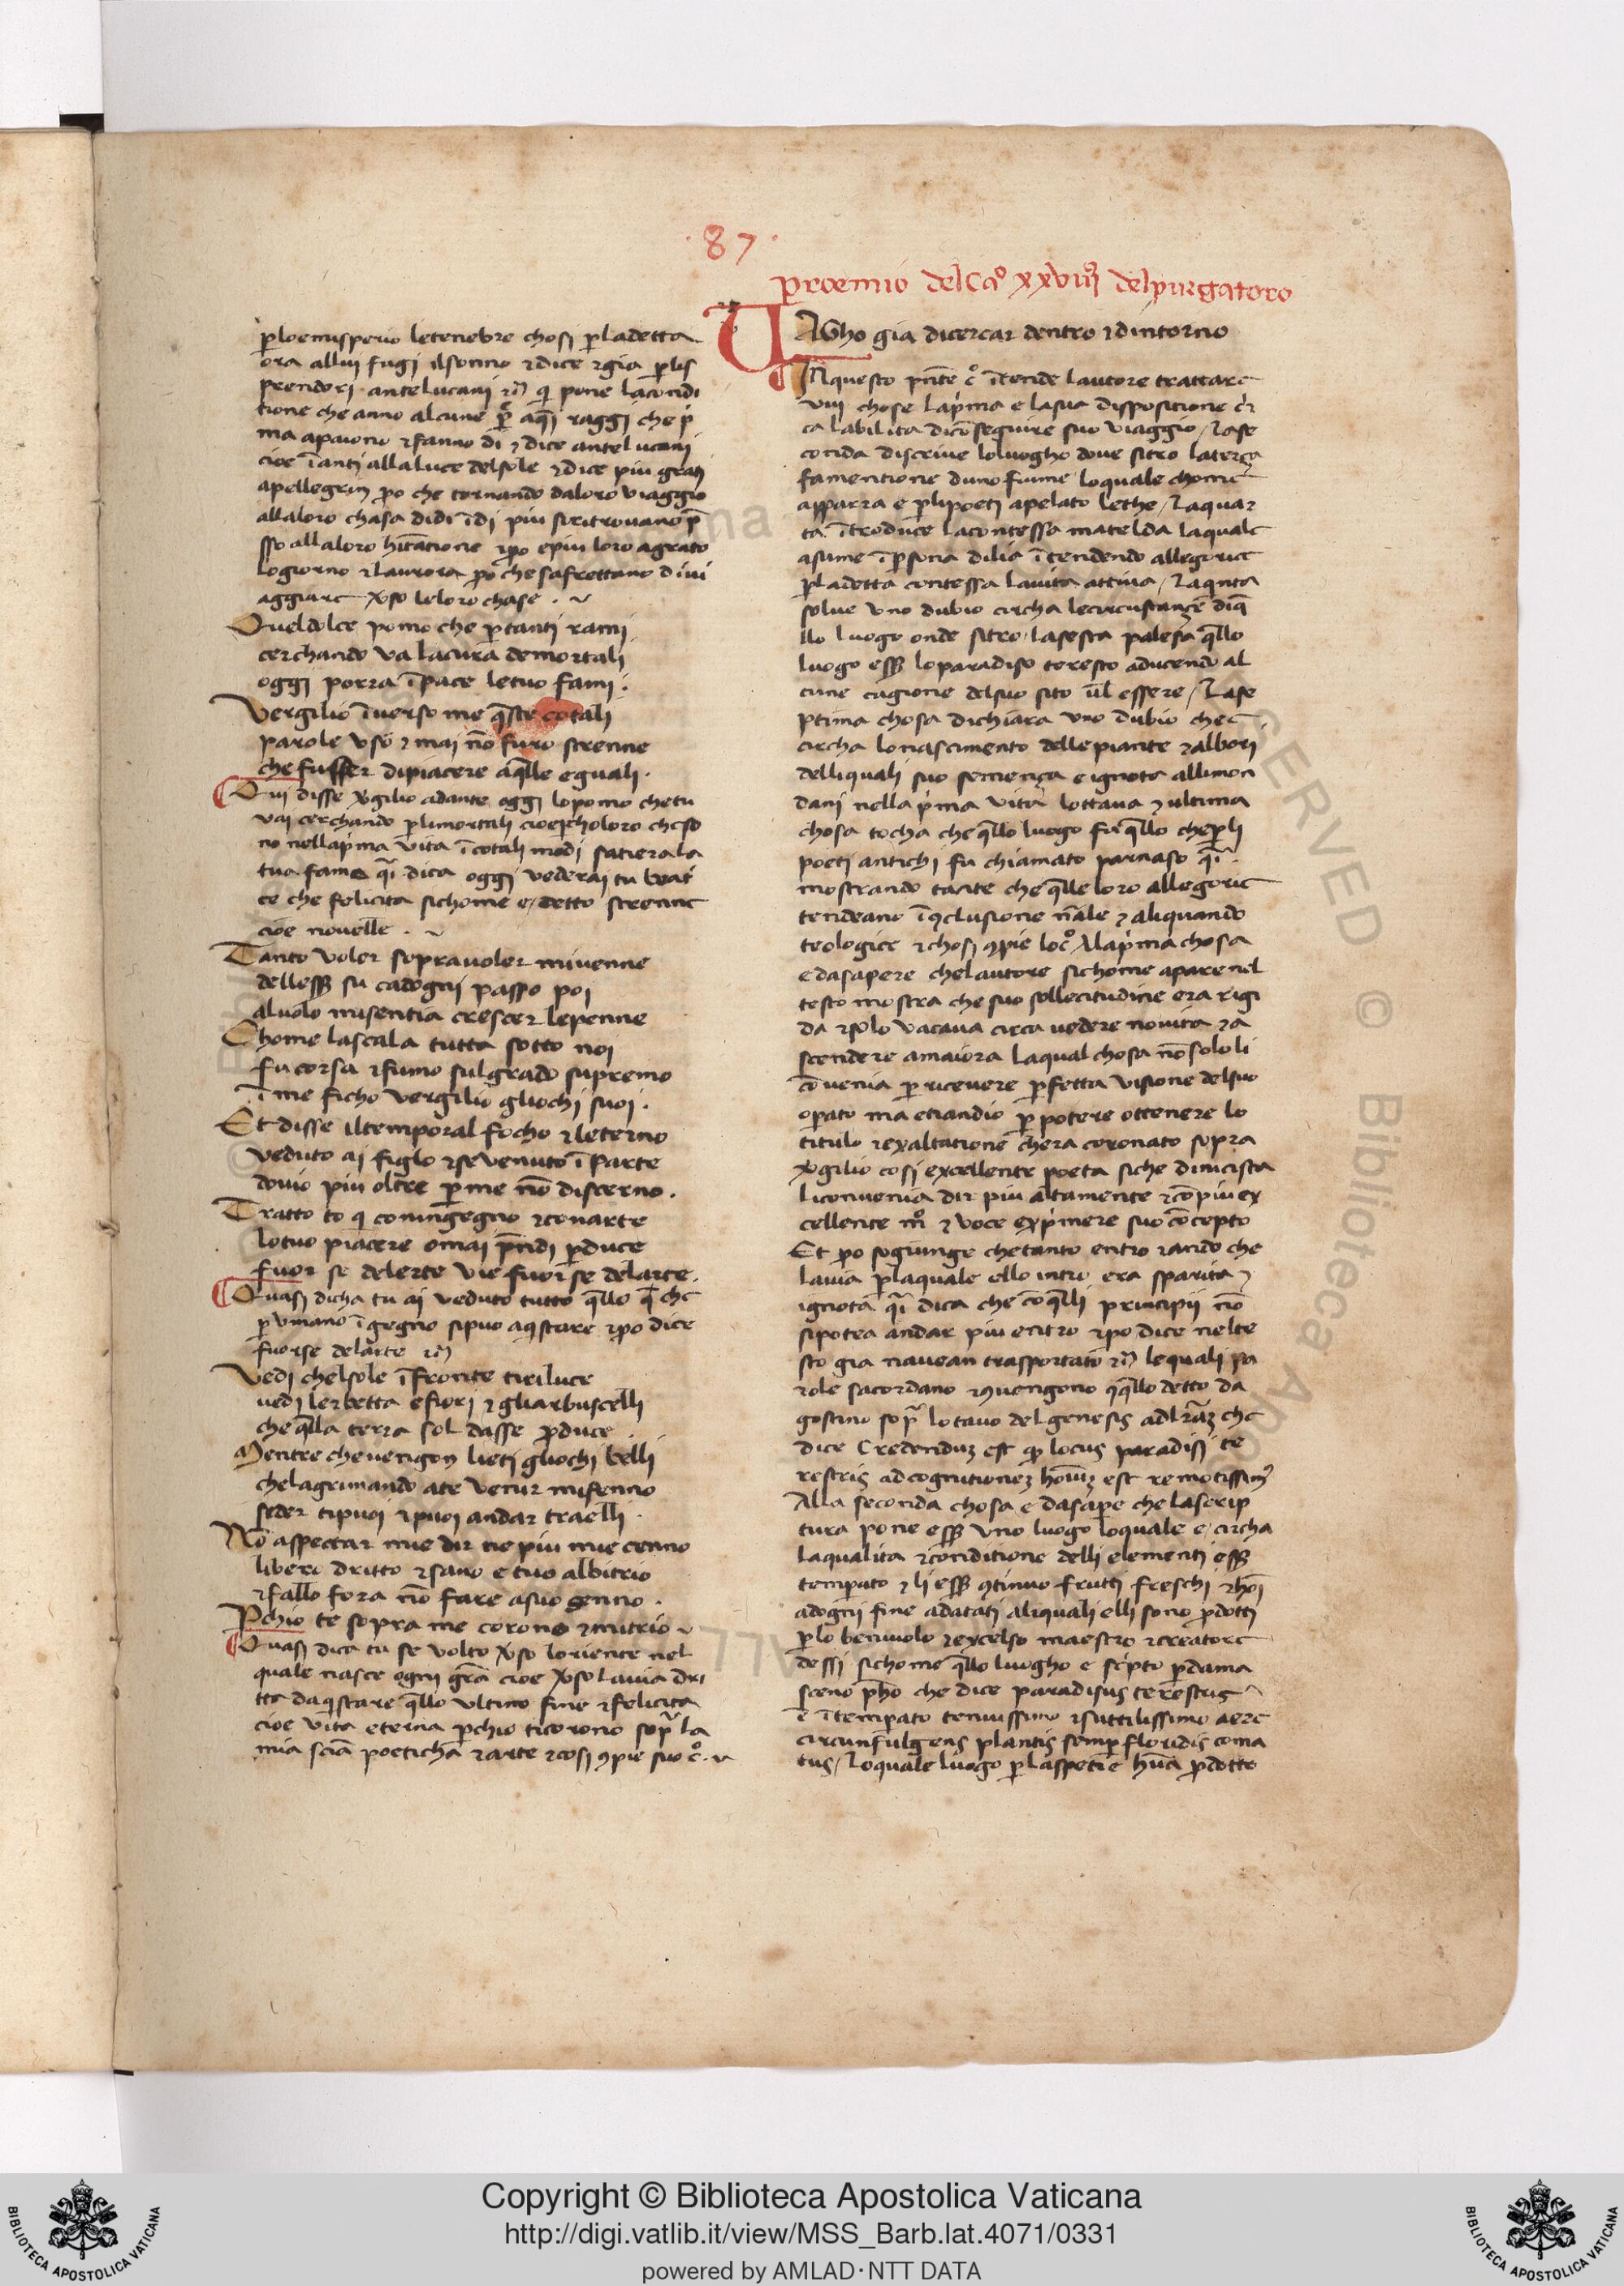 · 87 ·
proemio del Cao xxviii del purgatoro
ploemisperio letenebre chosi pladetta
ora allui fugi ilsonno ⁊ dice ⁊ gia plis
prendori · antelucani qi pone lacondi
tione che anno alcune raggi che p
ma apaiono ⁊ fanno di ⁊ dice antelucani
cioe ĩanti allaluce delsole ⁊ dice piu grati
apellegrin po che tornando daloro viaggio
allaloro chasa didi ĩdi piu siritrovano p̃
sso allaloro hitatione ⁊ po epiu loro agrato
logiorno ⁊ laurora po che safrettano diui
aggiare leloro chase .
Queldolce pomo che ptanti rami
cerchando va lacura demortali
oggi porra ĩpace letuo fami .
Vergilio ĩuerso me q̃ste cotali
parole vso ⁊ mai nõ furo strenne
che fusser dipiacere aq̃lle eguali .
Qui disse adante oggi lopomo chetu
vai cerchando plimortali choloro cheso
no nellapma vita ĩcotali modi satierala
tua fame dica oggi vederai tu beati
ce che felicita sichome e detto strenne
cioe novelle .
Tanto voler sopravoler mivenne
delless su cadogni passo poi
aluolo misentia crescer lepenne
Chome lascala tutta sotto noi
fu corsa ⁊ fumo sulgrado supremo
ĩ me ficho vergilio gliochi suoi .
Et disse iltemporal focho ⁊ leterno
veduto ai figlo ⁊ sevenuto ĩ parte
douio piu oltre pme nõ discerno .
Tratto to q coningegno ⁊ conarte
lotuo piacere omai p̃ndi pduce
fuor se delerte vie fuor se delarte .
Quasi dicha tu ai veduto tutto q̃llo che
pvmano ĩgegno sipuo aqstare ⁊ po dice
fuorse delarte
Vedi chelsole ĩfronte tiriluce
vedi lerbetta efiori ⁊ gliarbuscelli
che q̃lla terra sol dasse pduce .
Mentre chevengon lieti gliochi belli
chelagrimando ate venir mifenno
seder tipuoi ⁊ puoi andar traelli .
Nõ aspectar mie dir nepiu mie cenno
libero dritto ⁊ sano e tuo albitrio
⁊ fallo fora nõ fare asuo senno .
Pchio te sopra me corono ⁊ mitrio
Quasi dica tu se volto loriente nel
quale nasce ogni gr̃a cioe lavia dri
tta daqstare q̃llo vltimo fine ⁊ felicita
cioe vita eterna pchio ticorono sop̃ la
mia sciã poeticha ⁊ arte ⁊ cosi suo
VAgho gia dicercar dentro ⁊ dintorno
INquesto c̊ ĩtende lautore trattare
viii chose lapma e lasua dispositione
ca labilita dicõseguire suo viaggio / Lase
conda discrive loluogho doue sitro laterça
famentione duno fiume loquale chome
apparra e plipoeti apelato lethe / Laquar
ta ĩtroduce lacontessa matelda laquale
asume ĩpsona dilia ĩtendendo allegorice
pladetta contessa lauita attiua / Laqnta
solue vno dubio circha lecircustançe diq̃
llo luogo onde sitro / lasesta palesa q̃llo
luogo ess loparadiso teresto aducendo al
cune cagione delsuo sito ul essere / Lase
ptima chosa dichiara vno dubio che
circha lonascimento dellepiante ⁊ albori
delliquali suo semença e ignota allimon
dani nella pma vita lottaua ⁊ ultima
chosa tocha che q̃llo luogo fu q̃llo chepli
poeti antichi fu chiamato parnaso
mostrando tacite che q̃lle loro allegorie
tendeano ĩ9clusione ⁊ aliquando
teologice ⁊ chosi 9pie loc̊ Alapma chosa
e dasapere chelautore sichome apare nel
testo mostra che suo sollecitudine era rigi
da ⁊ solo vacaua circa uedere nouita ⁊ a
scendere amaiora laqual chosa nõ solo li
cõuenia pricevere pfetta visione delsuo
opato ma etiandio ppotere ottenere lo
titulo ⁊ exaltatione chera coronato sopra
cosi excellente poeta siche dinicista
liconuenia dir piu altamente ⁊ cõpiu ex
cellente ⁊ voce expmere suo cõcepto
Et po sogiunge chetanto entro ⁊ ando che
lauia plaquale ello intro era sparita ⁊
ignota dica che cõq̃lli principii nõ
sipotea andar piu entro ⁊ po dice nelte
sto gia mauean trasportato lequali pa
role sacordano ⁊ 9uengono detto da
gostino sop̃ lotauo del genesis che
dice Credenduz est locus paradisi te
restris adcognitionez est
Alla seconda chosa e dasape che lascrip
tura pone ess vno luogo loquale e circha
laqualita ⁊ conditione delli elementi ess
tempato ⁊ li ess 9tinuo frutti freschi
adogni fine adatati aliquali elli sono pdotti
plo beniuolo ⁊ excelso maestro ⁊ creatore
dessi sichome q̃llo luogho e scipto pdama
sceno che dice paradisus terestris
ĩtempato tenuissimo ⁊ suttilissimo aere
circunfulgens plantis semp floridis coma
tus / loquale luogo plaspetie pdotto
Copyright © Biblioteca Apostolica Vaticana
http://digi.vatlib.it/view/MSS_Barb.lat.4071/0331
powered by AMLAD·NTT DATA
BIBLIOTECA APOSTOLICA VATICANA
BIBLIOTECA APOSTOLICA VATICANA